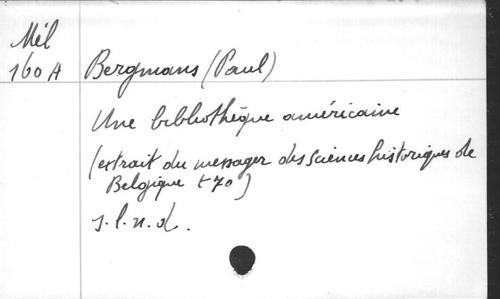 Mél
160 A Bergmans (Paul)
Une bibliothèque américaine
(extrait du messager des sciences historiques de
Belgique t 70)
s.l.n.d.